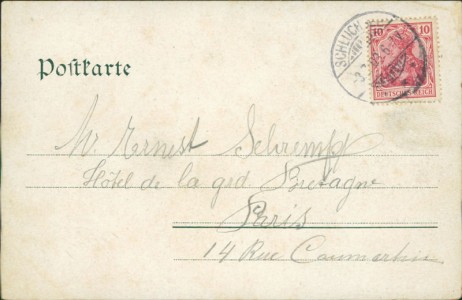 SCHLUCH
10 10
DEUTSCHES REICH
Postkarte
Mr. Ernest Schrempf
Hôtel de la grd Bretagne
Paris
14 Rue Caumartin